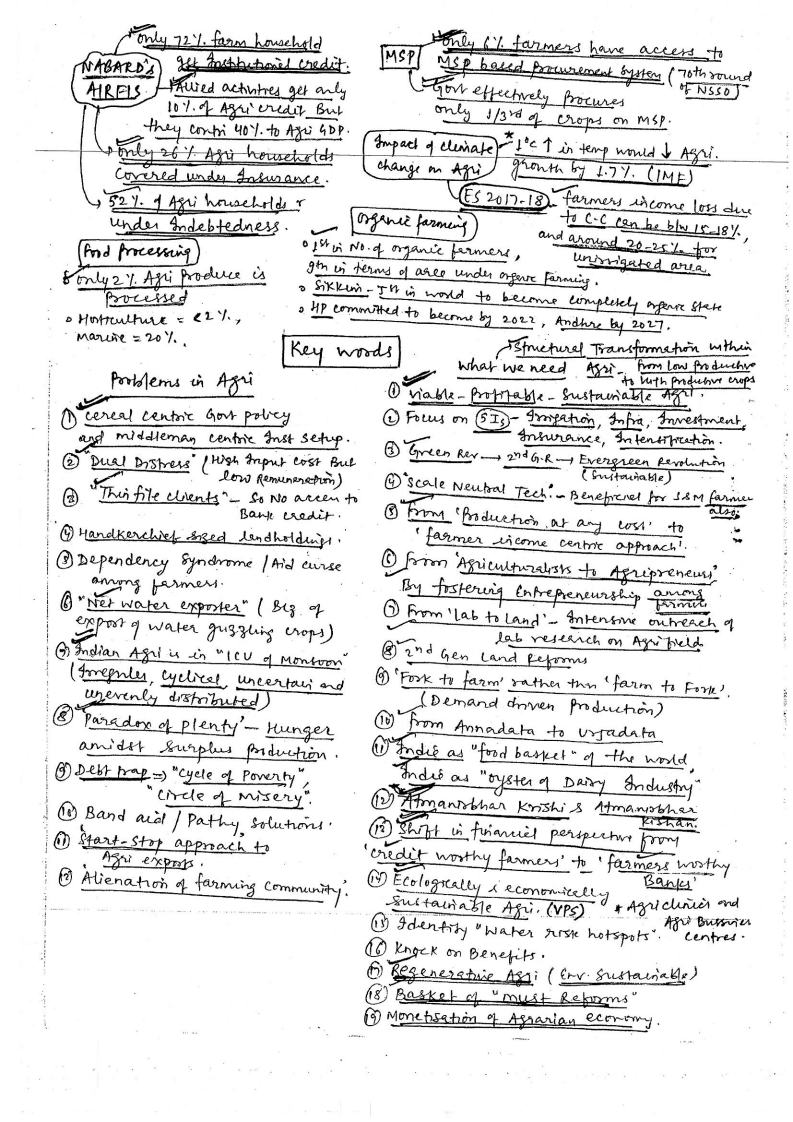 NABARD's
AIRFIS
only 72% farm household
get Institutional credit.
Allied activities get only
10% of Agri credit But
they contri 40% to Agri GDP.
only 26% Agri households
Covered under Insurance.
52% of Agri households r
under Indebtedness.
Food Processing
only 2% Agri Produce is
Processed
Horticulture = <2%,
Marine = 20%.
MSP
only 6% farmers have access to
MSP based procurement system (70th round
of NSSO)
Govt effectively procures
only 1/3rd of crops on MSP.
Impact of climate
change on Agri
* 1°C ↑ in temp would ↓ Agri.
growth by 1.7%. (IMF)
ES 2017-18 - farmers income loss due
to C.C can be b/w 15-18%,
and around 20-25% for
unirrigated area.
Organic farming
1st in No. of organic farmers,
9th in terms of area under organic farming.
Sikkim - Ist in world to become completely organic state
HP committed to become by 2022, Andhra by 2027.
Key words
Problems in Agri
① cereal centric Govt policy
and middleman centric Inst setup.
② "Dual Distress" (High Input cost But
low Remuneration)
③ "Thin file clients" - So No access to
Bank credit.
④ Handkerchief sized landholdings.
⑤ Dependency Syndrome / Aid curse
among farmers.
⑥ "Net water exporter" (Bcz of
export of water guzzling crops)
⑦ Indian Agri is in "ICU of Monsoon"
(Irregular, cyclical, uncertain and
unevenly distributed)
⑧ 'Paradox of plenty' - Hunger
amidst surplus production.
⑨ Debt trap => "Cycle of Poverty",
"Circle of Misery".
⑩ Band aid / Pathy solutions.
⑪ Start-Stop approach to
Agri exports.
⑫ 'Alienation of farming community'.
Structural Transformation within
what we need Agri - from low productive
to high produtive crops
① viable - Profitable - Sustainable Agri.
② Focus on 5Is - Irrigation, Infra, Investment,
Insurance, Intensification.
③ Green Rev → 2nd G.R → Evergreen Revolution
(Sustainable)
④ "Scale Neutral Tech" - Beneficial for S&M farmer
also
⑤ From 'Production at any cost' to
'farmer income centric approach'.
⑥ From 'Agriculturalists to Agripreneurs'
By fostering Entrepreneurship among
farmer
⑦ From 'lab to land' - Intensive outreach of
lab research on Agri field
⑧ 2nd Gen Land Reforms
⑨ 'Fork to farm' rather than 'farm to Fork'.
(Demand driven Production)
⑩ from Annadata to urjadata
⑪ India as "food basket" of the world,
India as "oyster of Dairy Industry"
⑫ Atmanirbhar Krishi & Atmanirbhar
Kishan.
⑬ Shift in financial perspective from
'credit worthy farmers' to 'farmers worthy
Banks'
⑭ Ecologically & economically
Sustainable Agri. (VPS)
* Agri clinics and
Agri Bussnies
centres.
⑮ Identify "Water risk hotspots".
⑯ Knock on Benefits.
⑰ Regenerative Agri (Env. Sustainable)
⑱ Basket of "must Reforms"
⑲ Monetisation of Agrarian economy.